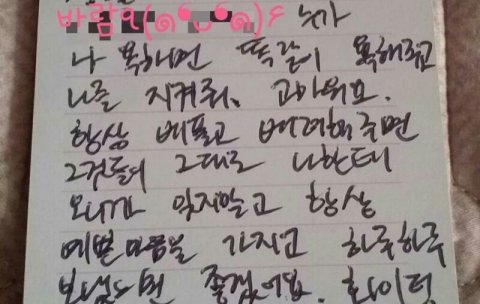 바람 q(๑❛ᴗ❛๑)۶ 누가
나 욕하면 똑같이 욕해주고
나를 지켜줘. 고마워요.
항상 베풀고 배려해 주면
그것들이 그대로 나한테
오니까 잊지말고 항상
예쁜 마음을 가지고 하루하루
보냈으면 좋겠어요. 화이팅